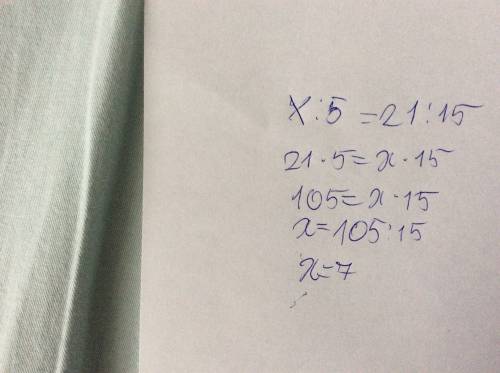 x:5=21:15
21·5=x·15
105=x·15
x=105:15
x=7